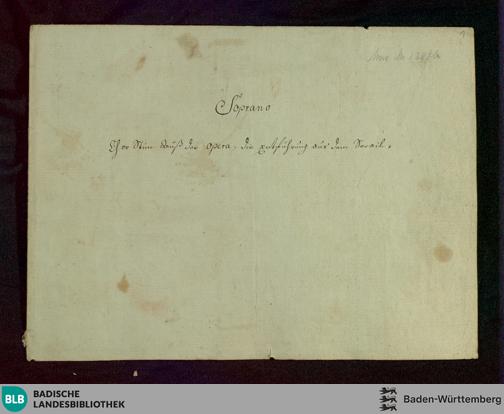 1
Mus. Hs. 1391 b
Soprano
Chor Stim̄ auß der Opera, die Entführung aus dem Serail.
BLB
BADISCHE
LANDESBIBLIOTHEK
Baden-Württemberg